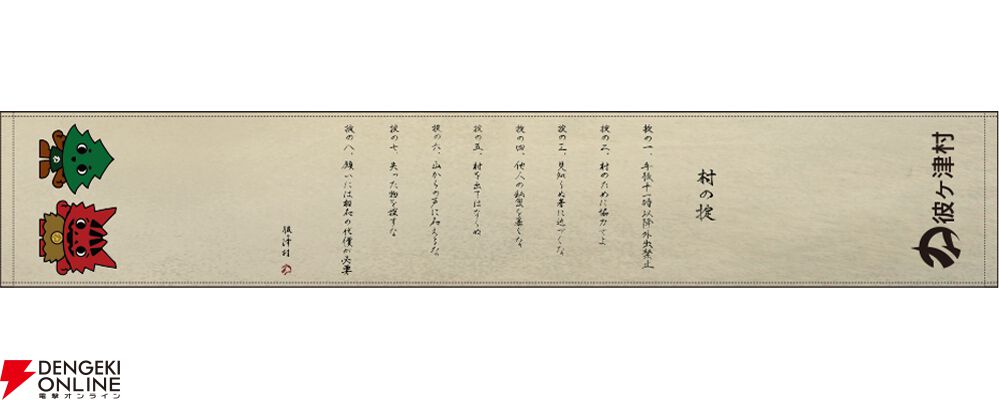 彼ヶ津村
村の掟
掟の一、午後十一時以降外出禁止
掟の二、村のために協力せよ
掟の三、見知らぬ者に近づくな
掟の四、他人の納盤を暴くな
掟の五、村を出てはならぬ
掟の六、山からの声に応えるな
掟の七、失った物を探すな
掟の八、願いには相応の代償が必要
彼ヶ津村
DENGEKI
ONLINE
電撃オンライン